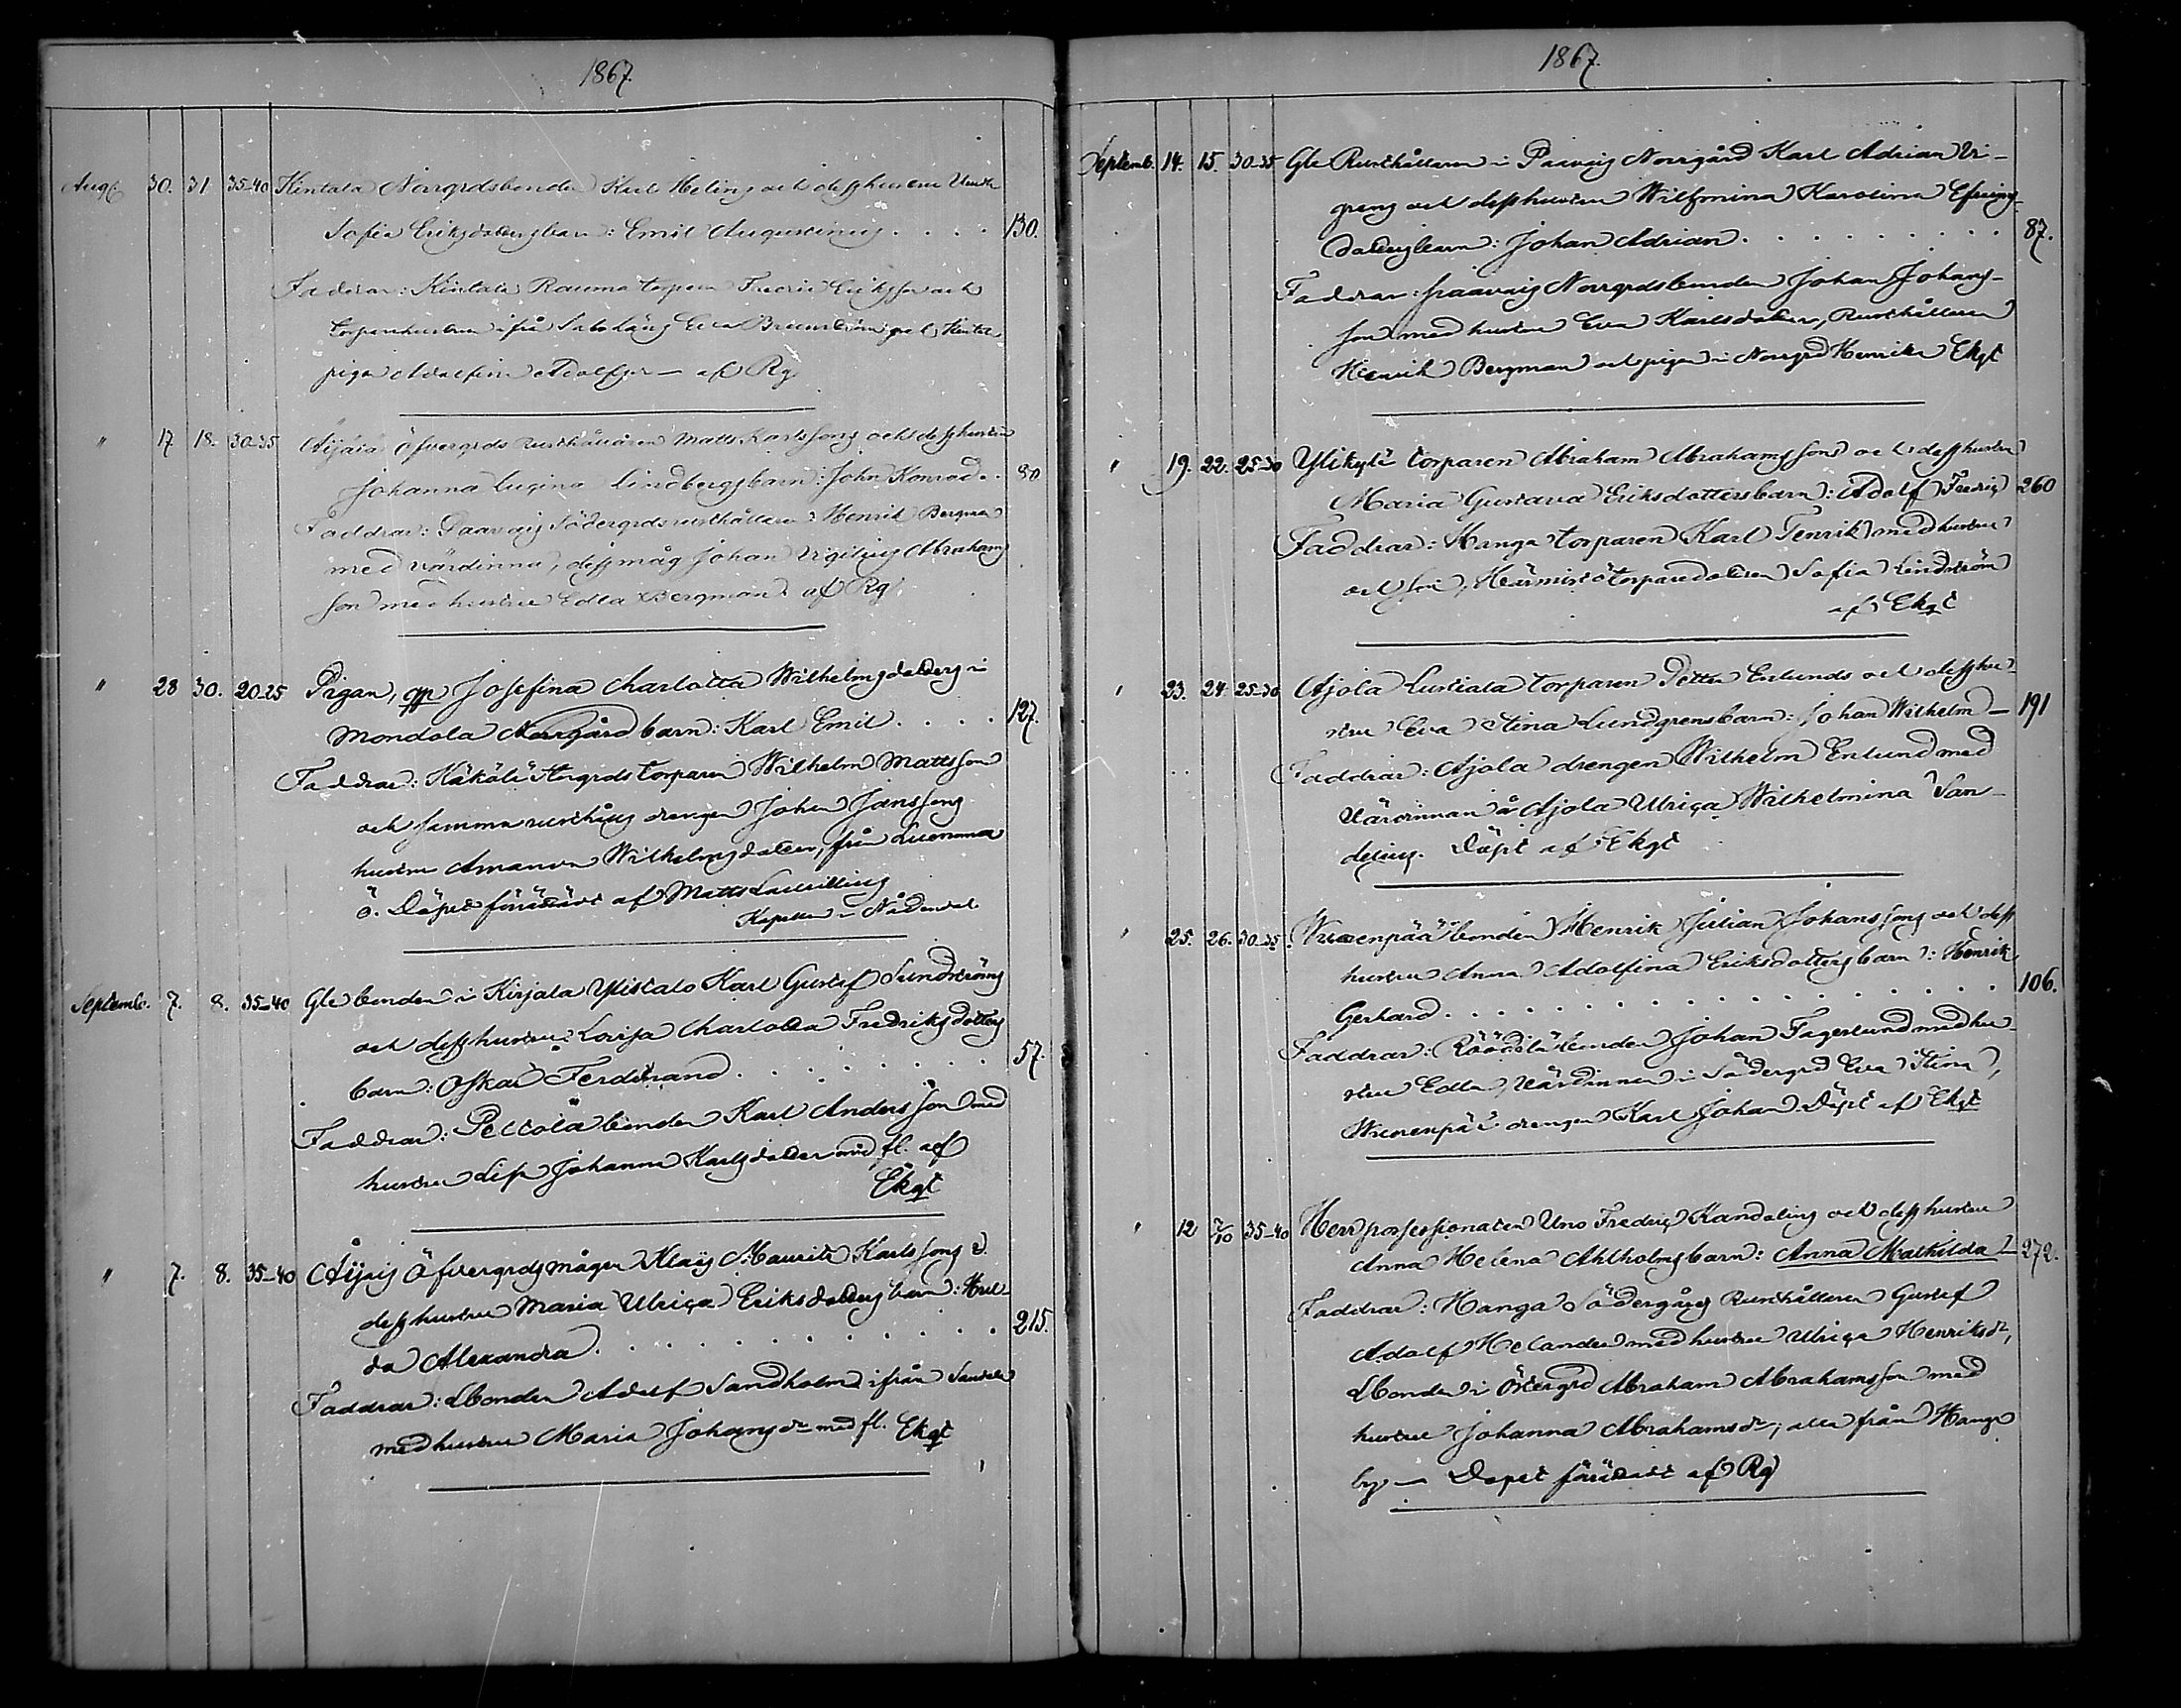 1867.
Aug. 30. 31. 35-40 Kintala Norrgrdsbonden Karl Helins och dess hustru
Sofia Eriksdotters barn: Emil Augustinus . . . . 130.
Faddrar: Kintala Rauma torparen Fredric Eriksson och
torparehustrun ifrån Eva Brunström och Kintala
pigan Adolfina Adolfsdr — af Rg
" 17 18. 30-35 Äijälä Öfvergrds rusthållaren Matts Karlssons och dess hustrus
Johanna Lugina Lindbergs barn: John Konrad . . 80
Faddrar: Paavais Södergrds rusthållaren Henrik Bergman
med värdinna, dess måg Johan Vigilius Abrahams
son med hustru Edla Bergman af Rg
" 28 30. 20-25 Pigan, Josefina Charlotta Wilhelmsdotters i
Mondola Norrgård barn: Karl Emil . . . . 127.
Faddrar: Käkölä torparen Wilhelm Mattsson
och samma rusthålls drengen Johan Janssons
hustru Amanda Wilhelmsdotter, från Luonnonmaa
ö. Döpt förrättadt af Matts Laurellius
Kapellan i Nådendal
Septemb. 7. 8. 35-40 Gle bonden i Kirjala Ylistalo Karl Gustaf Sundströms
och dess hustru Lovisa Charlotta Fredriksdotters
barn: Oskar Ferdinand . . . . . . . . . 57.
Faddrar: Peltola bonden Karl Andersson med
hustru Lisa Johanna Karlsdotter med fl. af
Ekqt
" 7. 8. 35-40 Äijäis Öfvergrds mågen Klas Mauritz Karlssons o.
dess hustru Maria Ulrica Eriksdotters barn: Hul-
da Alexandra . . . . . . . . . . . 215.
Faddrar: Bonden Adolf Sandholm ifrån
med hustru Maria Johansdr med fl. Ekqt
1867.
Septemb. 14. 15. 30-35 Gle Rusthållaren i Paavais Norrgård Karl Adrian Vi-
grens och dess hustru Wilhmina Karolina Efraims-
dotters barn: Johan Adrian . . . . . . . . . . 87.
Faddrar: Paavais Norrgrdsbonden Johan Johans-
son med hustru Eva Karlsdotter, Rusthållaren
Henrik Bergman och pigan i Norrgrd Henrika Ekqt
" 19. 22. 25-30 Ylikylä torparen Abraham Abrahamssons och dess hustru
Maria Gustava Eriksdotters barn: Adolf Fredric 260
Faddrar: Hanga torparen Karl Fenrik med hustru
och son, torparedottren Sofia Lindström
af Ekqt
" 23. 24. 25-30 Ajola torparen Petter Enlunds och dess hu-
stru Eva Stina Lundgrens barn: Johan Wilhelm — 191
Faddrar: Ajola drengen Wilhelm Enlund med
Värdinnan å Ajola Ulrica Wilhelmina San-
delius. Döpt af Ekqt
" 25. 26. 30-35. Wuorenpää bonden Henrik Julian Johanssons och dess
hustru Anna Adolfina Eriksdotters barn: Henrik
Gerhard . . . . . . . . . . . . . . . . 106.
Faddrar: bonden Johan Fagerlund med hu-
stru Edla, Värdinnan i Södergrd Eva Stina,
Wuorenpää drengen Karl Johan Döpt af Ekqt
" 12 7/10 35-40 Herr possessionaten Uno Fredric Kandelins och dess hustru
Anna Helena Ahlholms barn: Anna Mathilda — 272.
Faddrar: Hanga Södergårds Rusthållaren Gustaf
Adolf Helander med hustru Ulrica Henriksdr,
Bonden i Östergrd Abraham Abrahamsson med
hustru Johanna Abrahamsdr, alla från Hanga
by — Dopet förrättadt af Rg